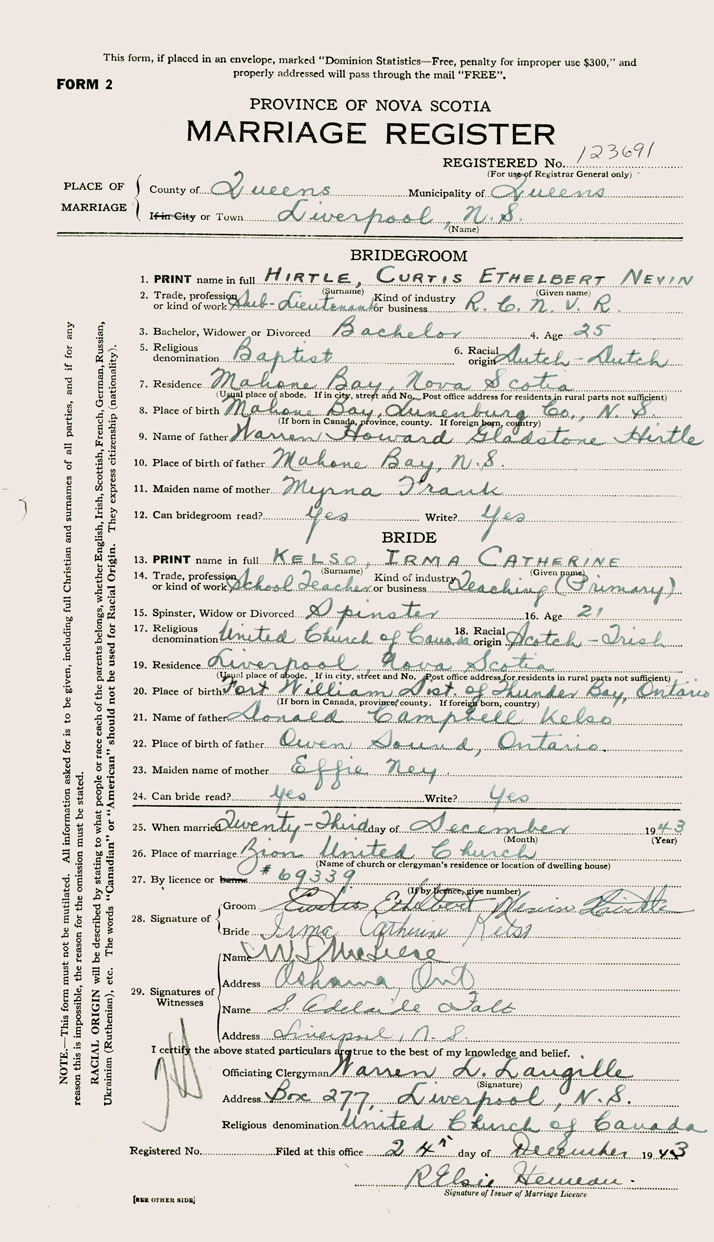 This form, if placed in an envelope, marked "Dominion Statistics—Free, penalty for improper use $300," and
properly addressed will pass through the mail "FREE".
FORM 2
PROVINCE OF NOVA SCOTIA
MARRIAGE REGISTER
REGISTERED No. 123691
(For use of Registrar General only)
PLACE OF MARRIAGE
County of Queens Municipality of Queens
If in City or Town Liverpool, N.S.
(Name)
BRIDEGROOM
1. PRINT name in full HIRTLE, CURTIS ETHELBERT NEVIN
(Surname) (Given name)
2. Trade, profession or kind of work Sub-Lieutenant Kind of industry or business R.C.N.V.R.
3. Bachelor, Widower or Divorced Bachelor 4. Age 25
5. Religious denomination Baptist 6. Racial origin Dutch-Dutch
7. Residence Mahone Bay, Nova Scotia
(Usual place of abode. If in city, street and No. Post office address for residents in rural parts not sufficient)
8. Place of birth Mahone Bay, Lunenburg Co., N.S.
(If born in Canada, province, county. If foreign born, country)
9. Name of father Warren Howard Gladstone Hirtle
10. Place of birth of father Mahone Bay, N.S.
11. Maiden name of mother Myrna Frank
12. Can bridegroom read? Yes Write? Yes
BRIDE
13. PRINT name in full KELSO, IRMA CATHERINE
(Surname) (Given name)
14. Trade, profession or kind of work School Teacher Kind of industry or business Teaching (Primary)
15. Spinster, Widow or Divorced Spinster 16. Age 21
17. Religious denomination United Church of Canada 18. Racial origin Scotch-Irish
19. Residence Liverpool, Nova Scotia
(Usual place of abode. If in city, street and No. Post office address for residents in rural parts not sufficient)
20. Place of birth Fort William Dist. of Thunder Bay, Ontario
(If born in Canada, province, county. If foreign born, country)
21. Name of father Donald Campbell Kelso
22. Place of birth of father Owen Sound, Ontario.
23. Maiden name of mother Effie Ney.
24. Can bride read? Yes Write? Yes
25. When married Twenty-Third day of December 1943
(Month) (Year)
26. Place of marriage Zion United Church
(Name of church or clergyman's residence or location of dwelling house)
27. By licence or banns #69339
(If by licence, give number)
28. Signature of
Groom Curtis Ethelbert Nevin Hirtle
Bride Irma Catherine Kelso
29. Signatures of Witnesses
Name
Address Oshawa, Ont
Name S. Adelaide
Address Liverpool, N.S.
I certify the above stated particulars are true to the best of my knowledge and belief.
Officiating Clergyman Warren L. Langille
(Signature)
Address Box 277, Liverpool, N.S.
Religious denomination United Church of Canada
Registered No. Filed at this office 24th day of December 1943
R Elsie
Signature of Issuer of Marriage Licence
[SEE OTHER SIDE]
NOTE.—This form must not be mutilated. All information asked for is to be given, including full Christian and surnames of all parties, and if for any
reason this is impossible, the reason for the omission must be stated.
RACIAL ORIGIN will be described by stating to what people or race each of the parents belongs, whether English, Irish, Scottish, French, German, Russian,
Ukrainian (Ruthenian), etc. The words "Canadian" or "American" should not be used for Racial Origin. They express citizenship (nationality).